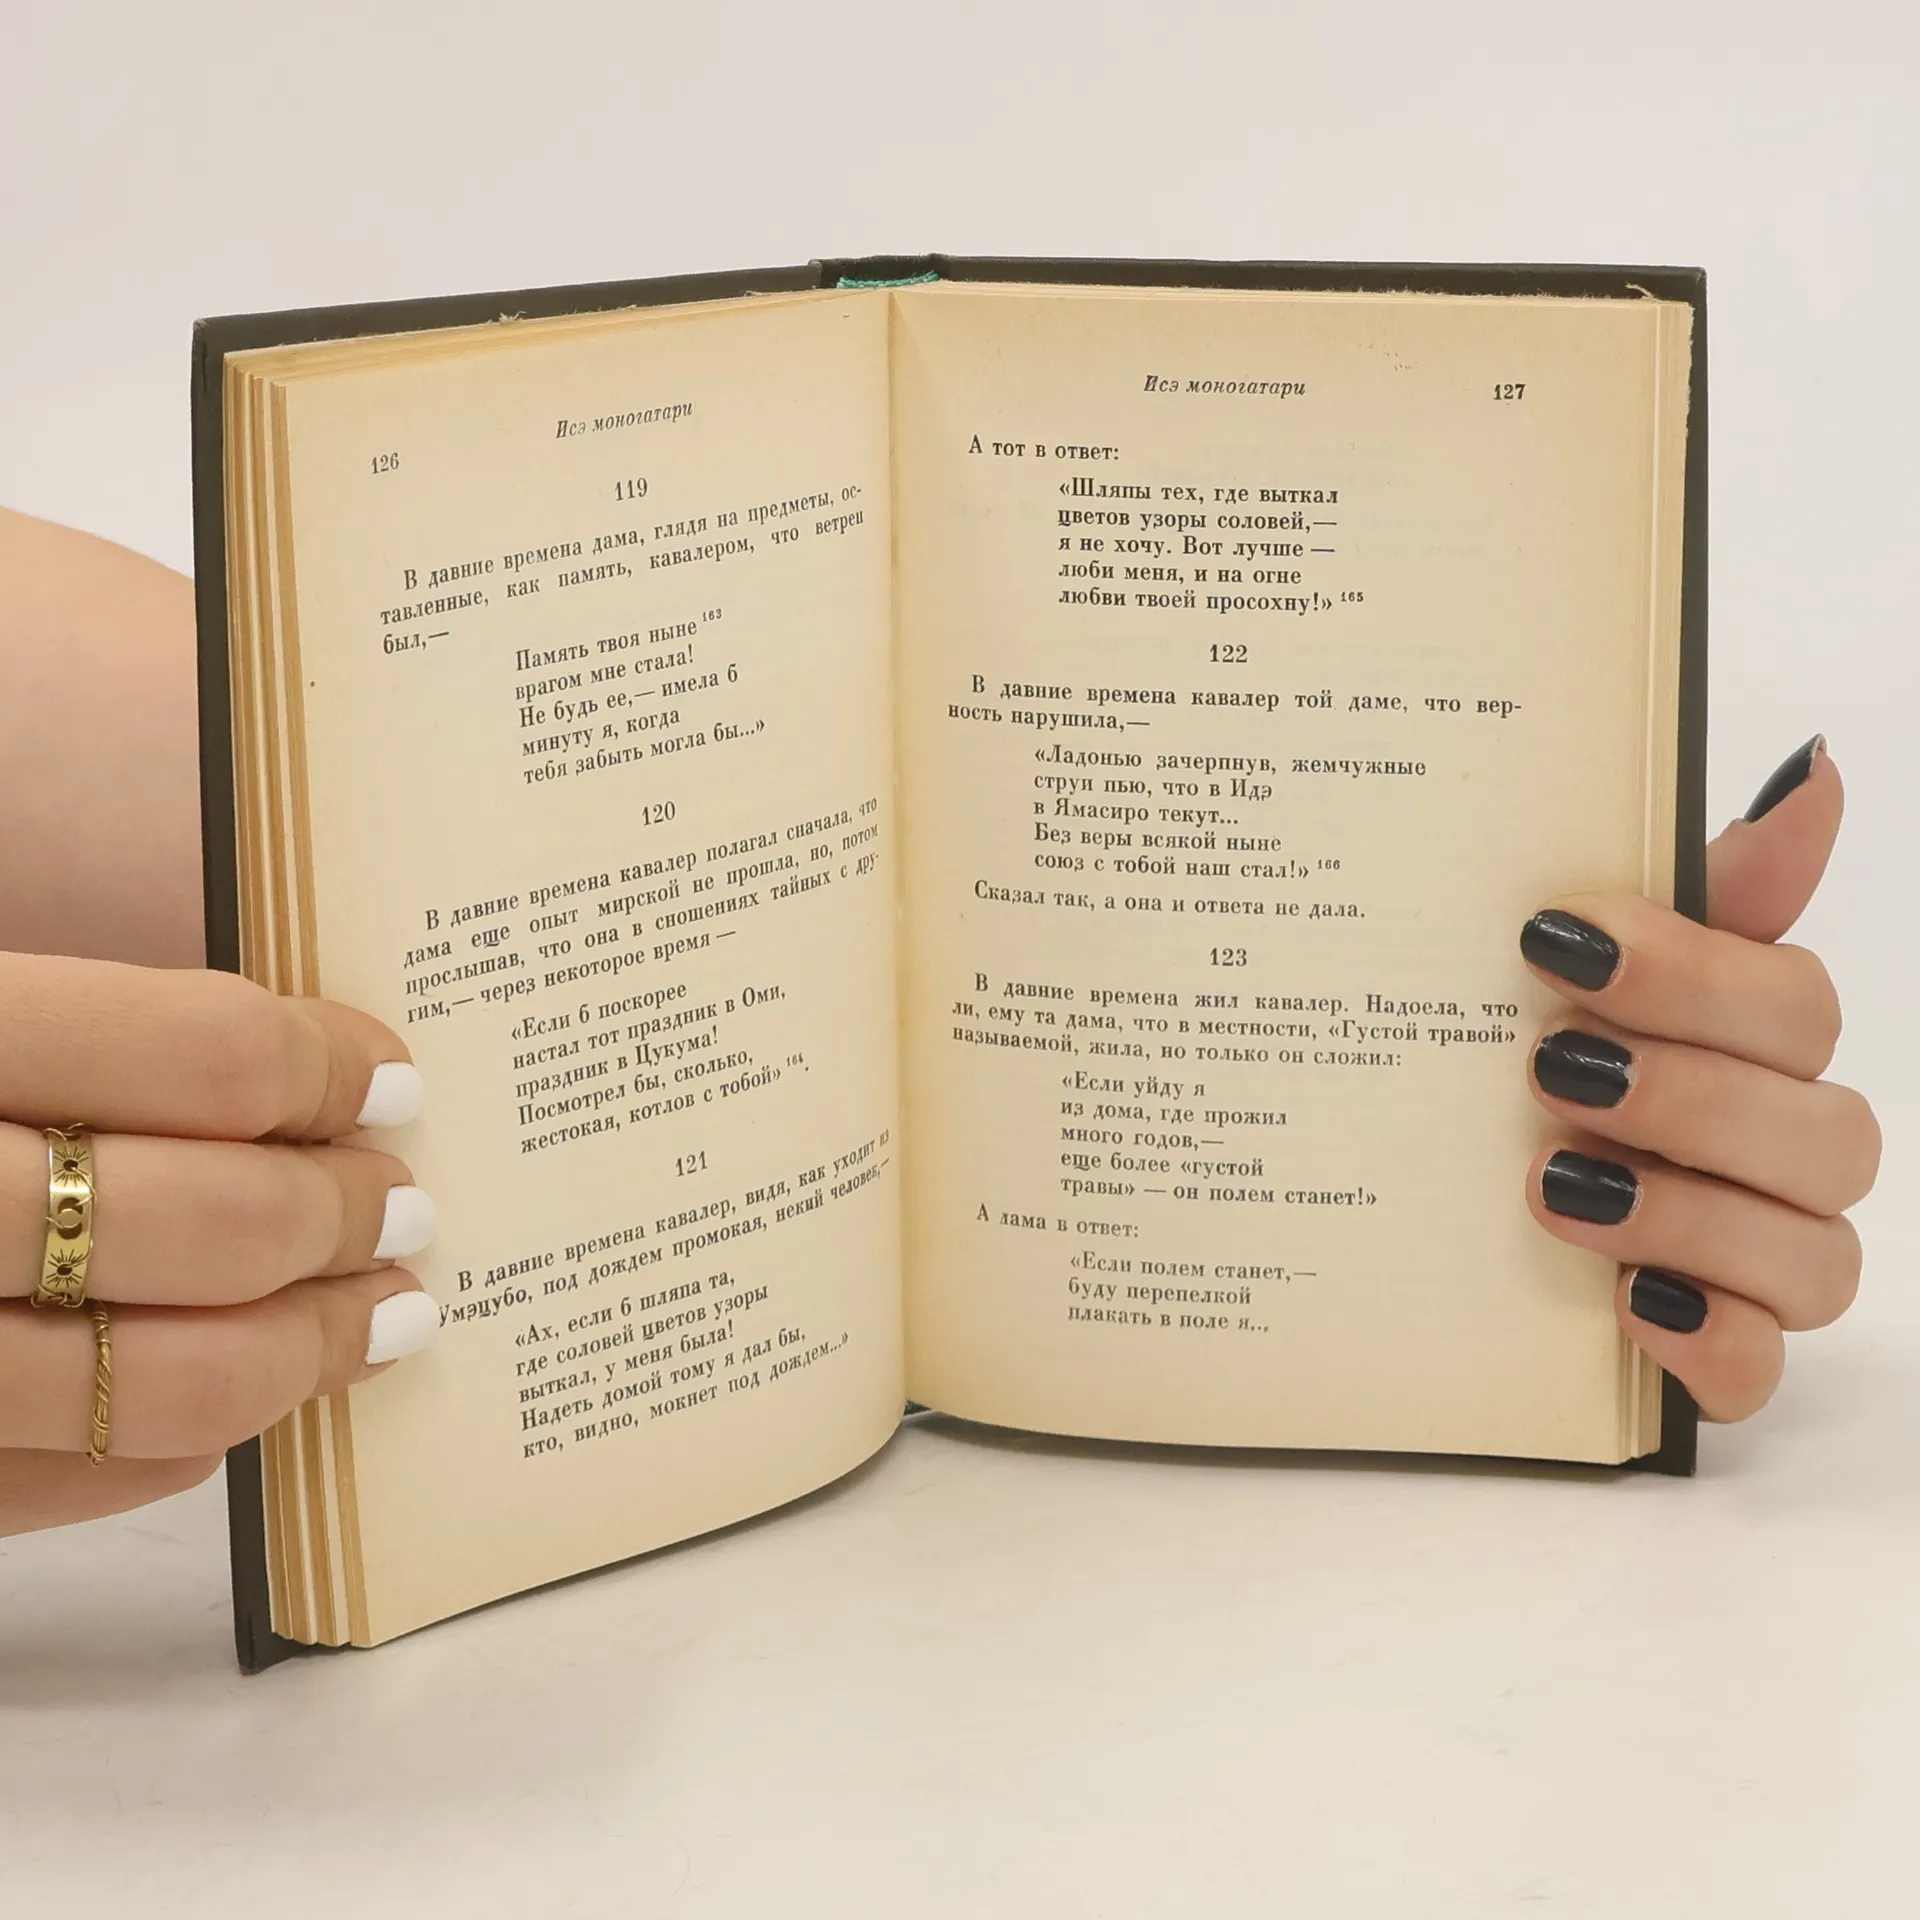 Исэ моногатари
126
119
В давние времена дама, глядя на предметы, ос-
тавленные, как память, кавалером, что ветрец
был,—
Память твоя ныне 163
врагом мне стала!
Не будь ее,— имела б
минуту я, когда
тебя забыть могла бы...»
120
В давние времена кавалер полагал сначала, что
дама еще опыт мирской не прошла, но, потом
прослышав, что она в сношениях тайных с дру-
гим,— через некоторое время —
«Если б поскорее
настал тот праздник в Оми,
праздник в Цукума!
Посмотрел бы, сколько,
жестокая, котлов с тобой» 164.
121
В давние времена кавалер, видя, как уходит из
Умэцубо, под дождем промокая, некий человек,—
«Ах, если б шляпа та,
где соловей цветов узоры
выткал, у меня была!
Надеть домой тому я дал бы,
кто, видно, мокнет под дождем...»
Исэ моногатари
127
А тот в ответ:
«Шляпы тех, где выткал
цветов узоры соловей,—
я не хочу. Вот лучше —
люби меня, и на огне
любви твоей просохну!» 165
122
В давние времена кавалер той даме, что вер-
ность нарушила,—
«Ладонью зачерпнув, жемчужные
струи пью, что в Идэ
в Ямасиро текут...
Без веры всякой ныне
союз с тобой наш стал!» 166
Сказал так, а она и ответа не дала.
123
В давние времена жил кавалер. Надоела, что
ли, ему та дама, что в местности, «Густой травой»
называемой, жила, но только он сложил:
«Если уйду я
из дома, где прожил
много годов,—
еще более «густой
травы» — он полем станет!»
А дама в ответ:
«Если полем станет,—
буду перепелкой
плакать в поле я...